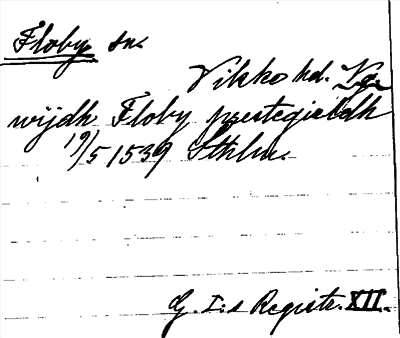 Floby sn.
Vilske hd. Vg.
wijdh Floby prestegieldh
19/5 1539 Sthlm.
G. I:s Registr. XII.